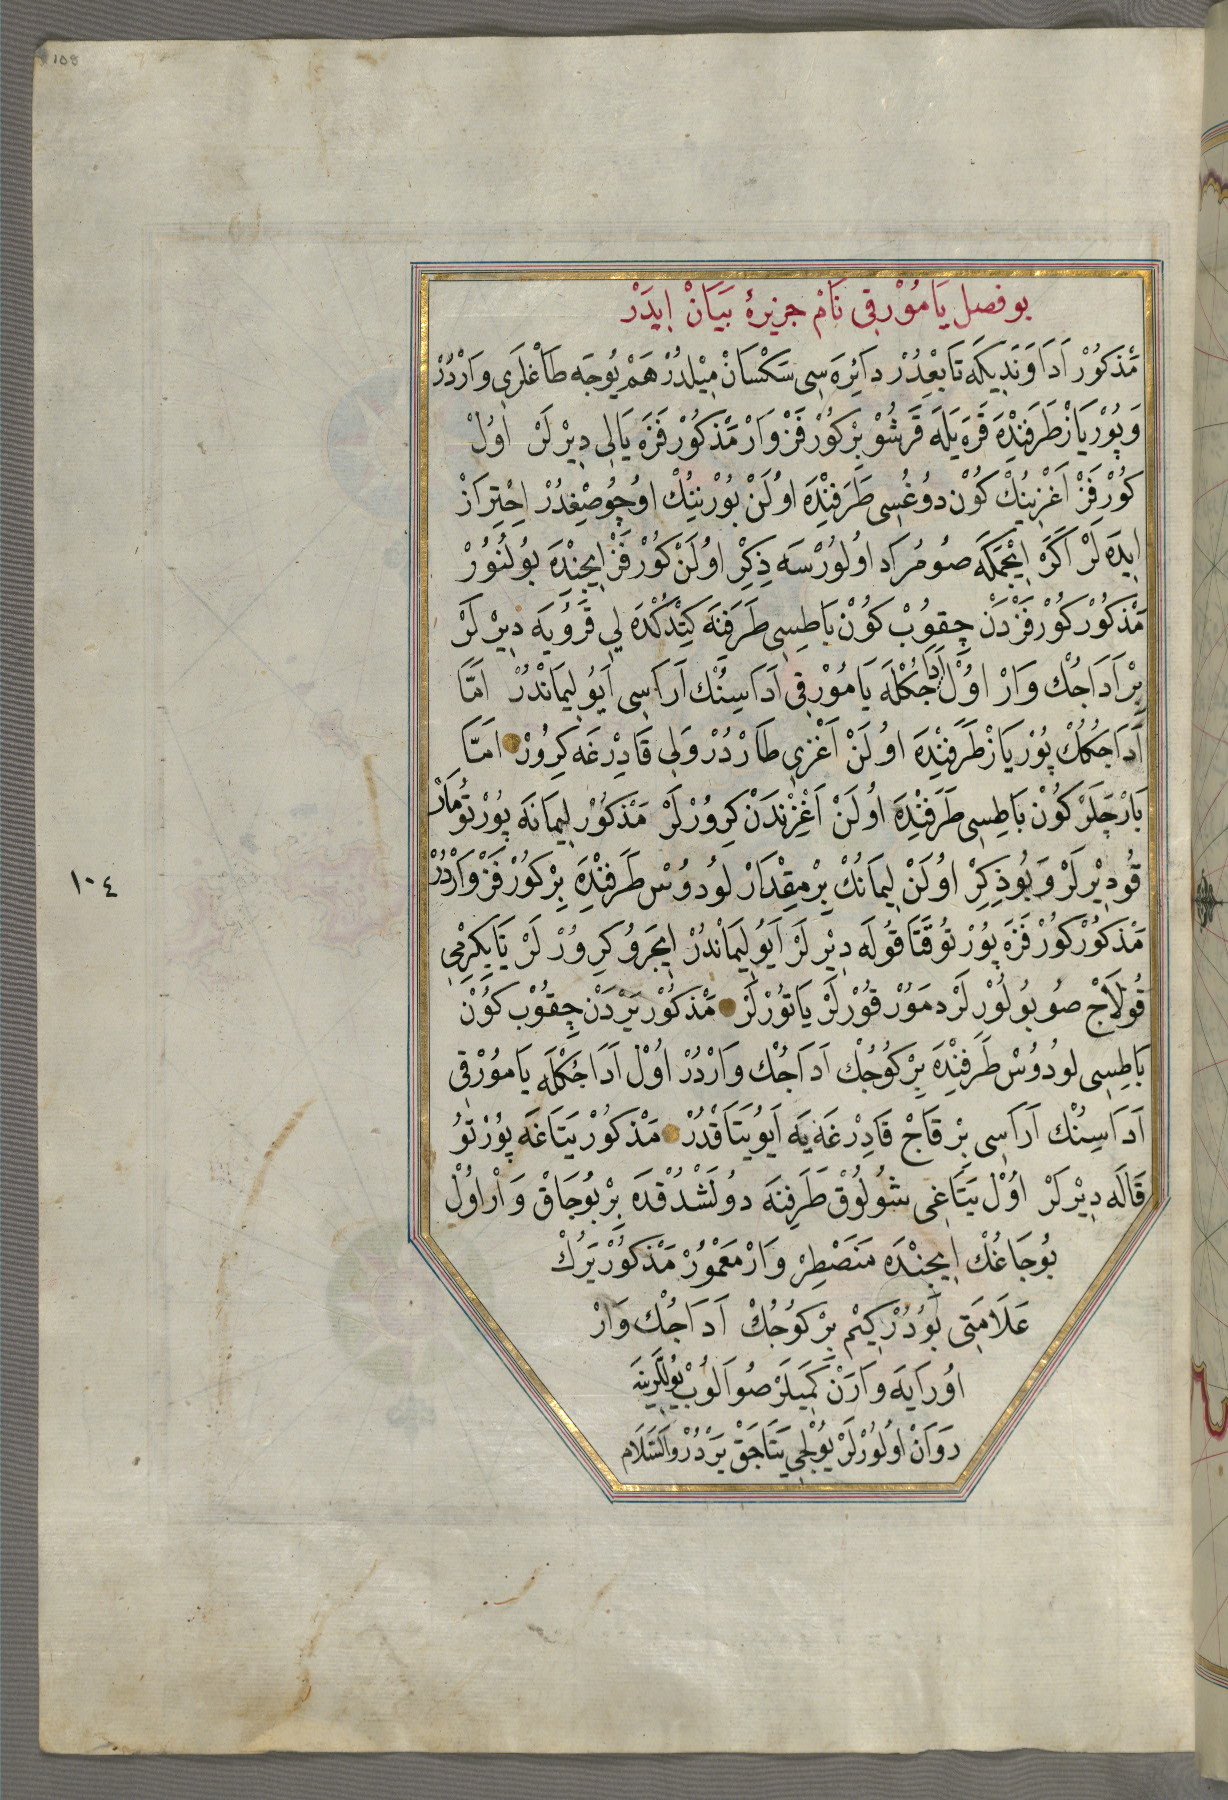 108
بو فصل يَامُوْرقِى نَامْ جزيرۀ بَيَانْ اِيدَرْ
مَذكُوْرْ اَدَا وَنَدِيكَه تَابِعْدُرْ دَائِرَه سِى سَكْسَانْ مِيْلدُرْ هَمْ يُوجَه طَاغْلَرِى وَارْدُرْ
وَ پُوْرْيَازْ طَرَفِنْدَه قَرَه يَلَه قَرْشُوْ بِرْ كُوْرْفَزْ وَارْ مَذكُوْرْفَزَه يَالِى دِيْرلَرْ اُولْ
كُوْرْفَزْ اَغْزِينُكْ كُوْنْ دوُغُسِى طَرَفِنْدَه اوُلَنْ بُوْرنِنُكْ اوُچُو صِغدُرْ اِحْتِرَازْ
ايِدَه لَرْ اَكَرْ اِيْجْمَكَه صُو مُرَاد اوُلُورْسَه ذِكِرْ اوُلَنْ كُوْرْفَزْ اِيجِنْدَه بُولُنُورْ
مَذكُوْرْ كُوْرْفَزْدَنْ چِقوُبْ كوُنْ بَاطِسِى طَرَفِنَه كِتْدُكْدَه لِى قَرُويَه دِيْرلَرْ
بِرْ اَدَاجُكْ وَارْ اوُلْ اَدَاجُكْلَه يَامُوْرقِى اَدَاسِنُكْ اَرَاسِى اَيُو لِيمَانْدُرْ اَمَّا
اَدَاجُكُكْ پُوْريَازْ طَرَفِنْدَه اوُلَنْ اَغْزِى طَارْدُرْ وَلِى قَادِرْغَه كِرُورْ اَمَّا
بَارْچَلَرْ كُوْنْ بَاطِسِى طَرَفِنْدَه اوُلَنْ اَغْزِنْدَنْ كِرُورْلَرْ مَذكُوْرْ لِيمَانَه پُوْرْتوُمَارْ
قُو دِيْرلَرْ وَ بُو ذِكِرْ اوُلَنْ لِيمَانُكْ بِرْ مِقْدَارْ لوُدوُسْ طَرَفِنْدَه بِرْ كُوْرْفَزْ وَارْدُرْ
مَذكُوْرْ كُوْرْفَزَه پُوْرْتوُ قَتَاقُولَه دِيْرلَرْ اَيُو لِيمَانْدُرْ اِيچَرُو كِرُورْلَرْ تَا يِكِرْمِى
قُوْلَاجْ صُو بُولُوْرلَرْ دمَوُرْ قُوْرْلَرْ يَاتوُرْلَرْ مَذكُوْرْ يَرْدَنْ چِقوُبْ كوُنْ
بَاطِسِى لوُدوُسْ طَرَفِنْدَه بِرْ كوُجُكْ اَدَاجُكْ وَارْدُرْ اوُلْ اَدَاجُكْلَه يَامُوْرقِى
اَدَاسِنُكْ اَرَاسِى بِرْ قَاجْ قَادِرْغَه يَه اَيُو يَتَاقْدُرْ مَذكُوْرْ يَتَاغَه پُوْرْتوُ
قَالَه دِيْرلَرْ اوُلْ يَتَاغِى شُولُوْقْ طَرَفِنَه دوُلَشْدُقْدَه بِرْ بُوجَاقْ وَارْ اوُلْ
بُوجَاغُكْ اِيچِنْدَه مَنَصْطِرْ وَارْ مَعْمُورْ مَذكُوْرْ يَرُكْ
عَلَامَتِى بُودُرْ كِيمْ بِرْ كوُجُكْ اَدَاجُكْ وَارْ
اوُرَايَه وَارَنْ كَمِيلَرْ صُو اَلوُبْ يُوللَرِينَه
رَوَانْ اوُلُورْلَرْ يُوْلِجِى يَتَاجَقْ يَرْدُرْ وَالسَّلَام
١٠٤